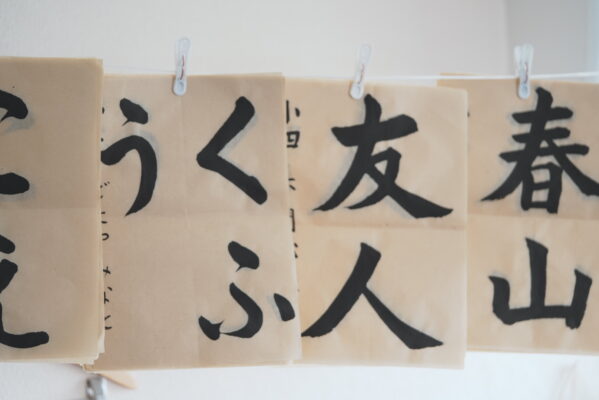 春山
友人
小四
くふ
う
こえ